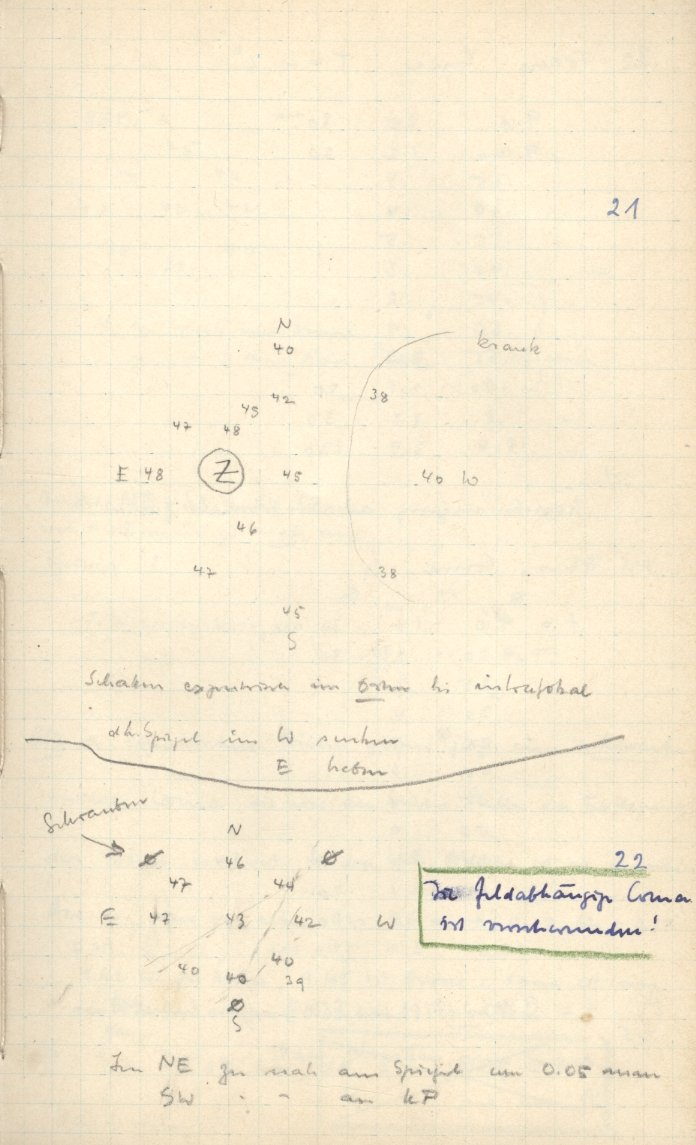 21
N
40
krank
42 38
45
47 48
E 48 Z 45 40 W
46
47 38
45
S
Schatten exzentrisch im Osten bis intrafokal
d.h. Spiegel im W senken
E heben
Schrauben
N
Ø 46 Ø
22
47 44
Die feldabhängige Coma
E 47 43 42 W
ist verschwunden!
40 40
40 39
Ø
S
Im NE zu nah am Spiegel um 0.05 mm
SW " " am kP